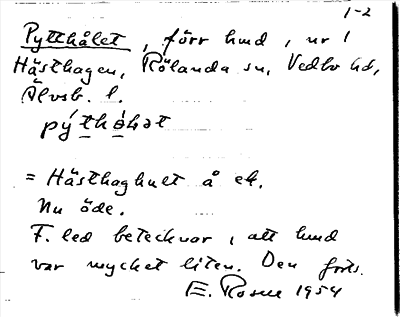 1-2
Pytthålet, förr lund, nr 1
Hästhagen, Rölanda sn, Vedbo hd,
Älvsb. l.
= Hästhaghult å ek.
Nu öde.
F. led betecknar, att lund
var mycket liten. Den forts.
E. Rosell 1954